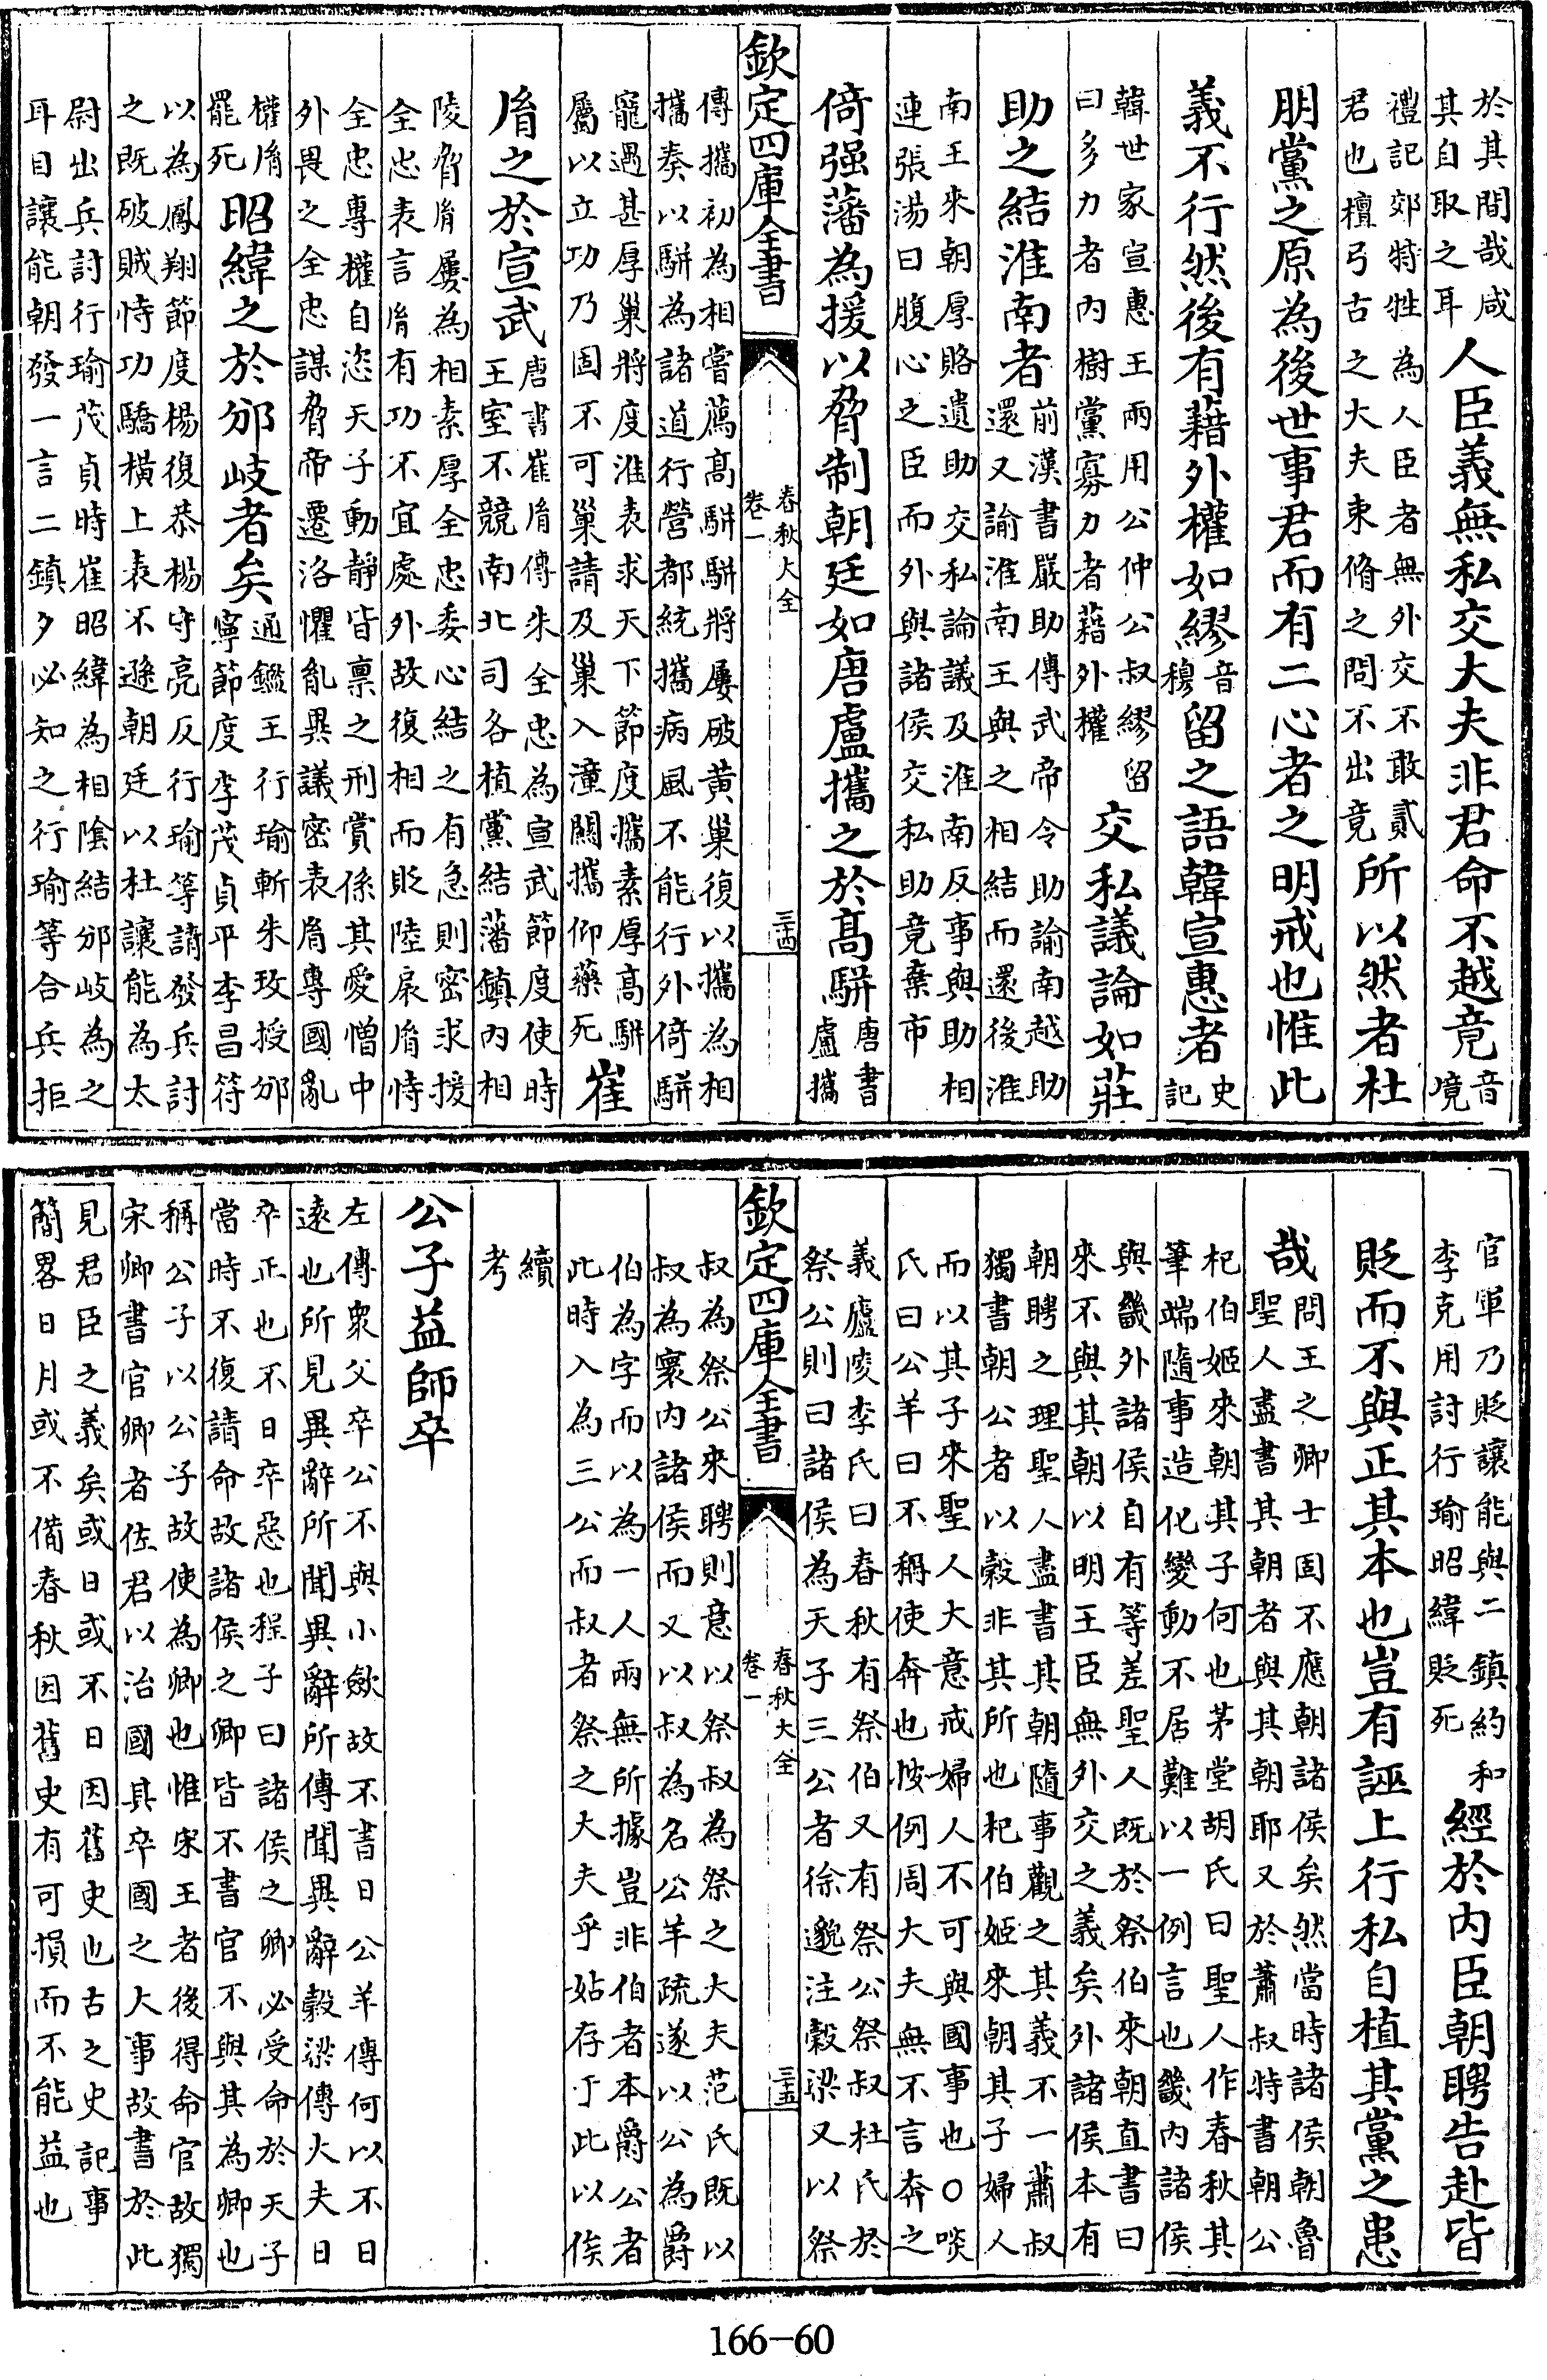 於其間哉咸其自取之耳人臣義無私交大夫非君命不越竟音境
禮記郊特牲為人臣者無外交不敢貳君也檀弓古之大夫束脩之問不出竟所以然者杜
朋黨之原為後世事君而有二心者之明戒也惟此
義不行然後有藉外權如繆音穆留之語韓宣惠者史記
韓世家宣惠王兩用公仲公叔繆留曰多力者內樹黨寡力者藉外權交私議論如莊
助之結淮南者前漢書嚴助傳武帝令助諭南越助還又諭淮南王與之相結而還後淮
南王來朝厚賂遺助交私論議及淮南反事與助相連張湯曰腹心之臣而外與諸侯交私助竟棄市
倚强藩為援以脅制朝廷如唐盧攜之於髙駢唐書盧攜
欽定四庫全書 春秋大全 卷一 三十四
傳攜初為相嘗薦髙駢駢將屢破黄巢復以攜為相攜奏以駢為諸道行營都統攜病風不能行外倚駢
寵遇甚厚巢將度淮表求天下節度攜素厚髙駢屬以立功乃固不可巢請及巢入潼關攜仰藥死崔
胤之於宣武唐書崔胤傳朱全忠為宣武節度使時王室不競南北司各植黨結藩鎮內相
陵脅胤屢為相素厚全忠委心結之有急則密求援全忠表言胤有功不宜處外故復相而貶陸扆胤恃
全忠專權自恣天子動靜皆稟之刑賞係其愛憎中外畏之全忠謀脅帝遷洛懼亂異議密表胤專國亂
權胤罷死昭緯之於邠岐者矣通鑑王行瑜斬朱玫授邠寧節度李茂貞平李昌符
以為鳳翔節度楊復恭楊守亮反行瑜等請發兵討之既破賊恃功驕橫上表不遜朝廷以杜讓能為太
尉出兵討行瑜茂貞時崔昭緯為相陰結邠岐為之耳目讓能朝發一言二鎮夕必知之行瑜等合兵拒
官軍乃貶讓能與二鎮約和李克用討行瑜昭緯貶死經於內臣朝聘告赴皆
貶而不與正其本也豈有誣上行私自植其黨之患
哉問王之卿士固不應朝諸侯矣然當時諸侯朝魯聖人盡書其朝者與其朝耶又於蕭叔特書朝公
杞伯姬來朝其子何也茅堂胡氏曰聖人作春秋其筆端隨事造化變動不居難以一例言也畿內諸侯
與畿外諸侯自有等差聖人既於祭伯來朝直書曰來不與其朝以明王臣無外交之義矣外諸侯本有
朝聘之理聖人盡書其朝隨事觀之其義不一蕭叔獨書朝公者以穀非其所也杞伯姬來朝其子婦人
而以其子來聖人大意戒婦人不可與國事也○啖氏曰公羊曰不稱使奔也按例周大夫無不言奔之
義廬陵李氏曰春秋有祭伯又有祭公祭叔杜氏於祭公則曰諸侯為天子三公者徐邈注穀梁又以祭
欽定四庫全書 春秋大全 卷一 三十五
叔為祭公來聘則意以祭叔為祭之大夫范氏既以叔為寰內諸侯而又以叔為名公羊疏遂以公為爵
伯為字而以為一人兩無所據豈非伯者本爵公者此時入為三公而叔者祭之大夫乎姑存于此以俟
續考
公子益師卒
左傳衆父卒公不與小斂故不書日公羊傳何以不日遠也所見異辭所聞異辭所傳聞異辭穀梁傳大夫日
卒正也不日卒惡也程子曰諸侯之卿必受命於天子當時不復請命故諸侯之卿皆不書官不與其為卿也
稱公子以公子故使為卿也惟宋王者後得命官故獨宋卿書官卿者佐君以治國其卒國之大事故書於此
見君臣之義矣或日或不日因舊史也古之史記事簡畧日月或不備春秋因舊史有可損而不能益也
166-60